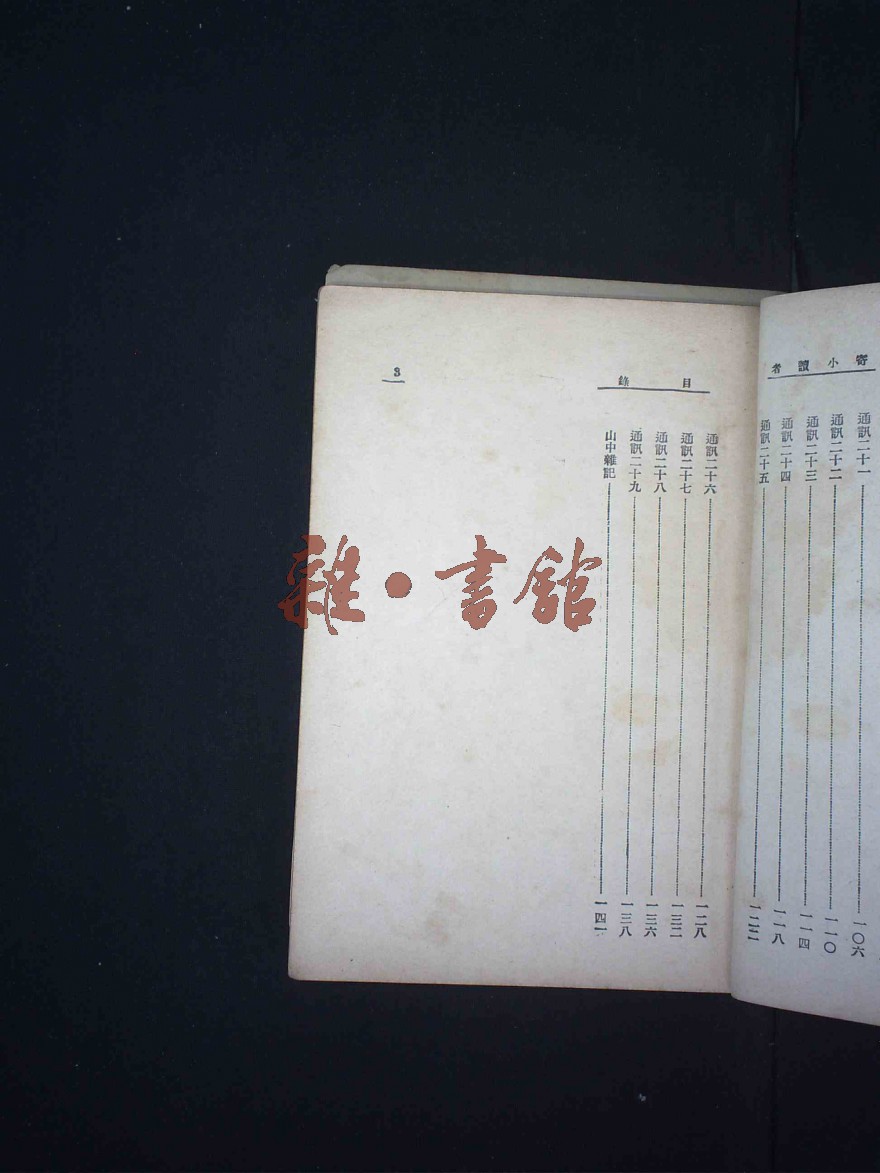 寄小讀者
通訊二十一 一〇六
通訊二十二 一一〇
通訊二十三 一一四
通訊二十四 一一八
通訊二十五 一二二
目錄
3
通訊二十六 一二八
通訊二十七 一三二
通訊二十八 一三六
通訊二十九 一三八
山中雜記 一四一
雜·書館